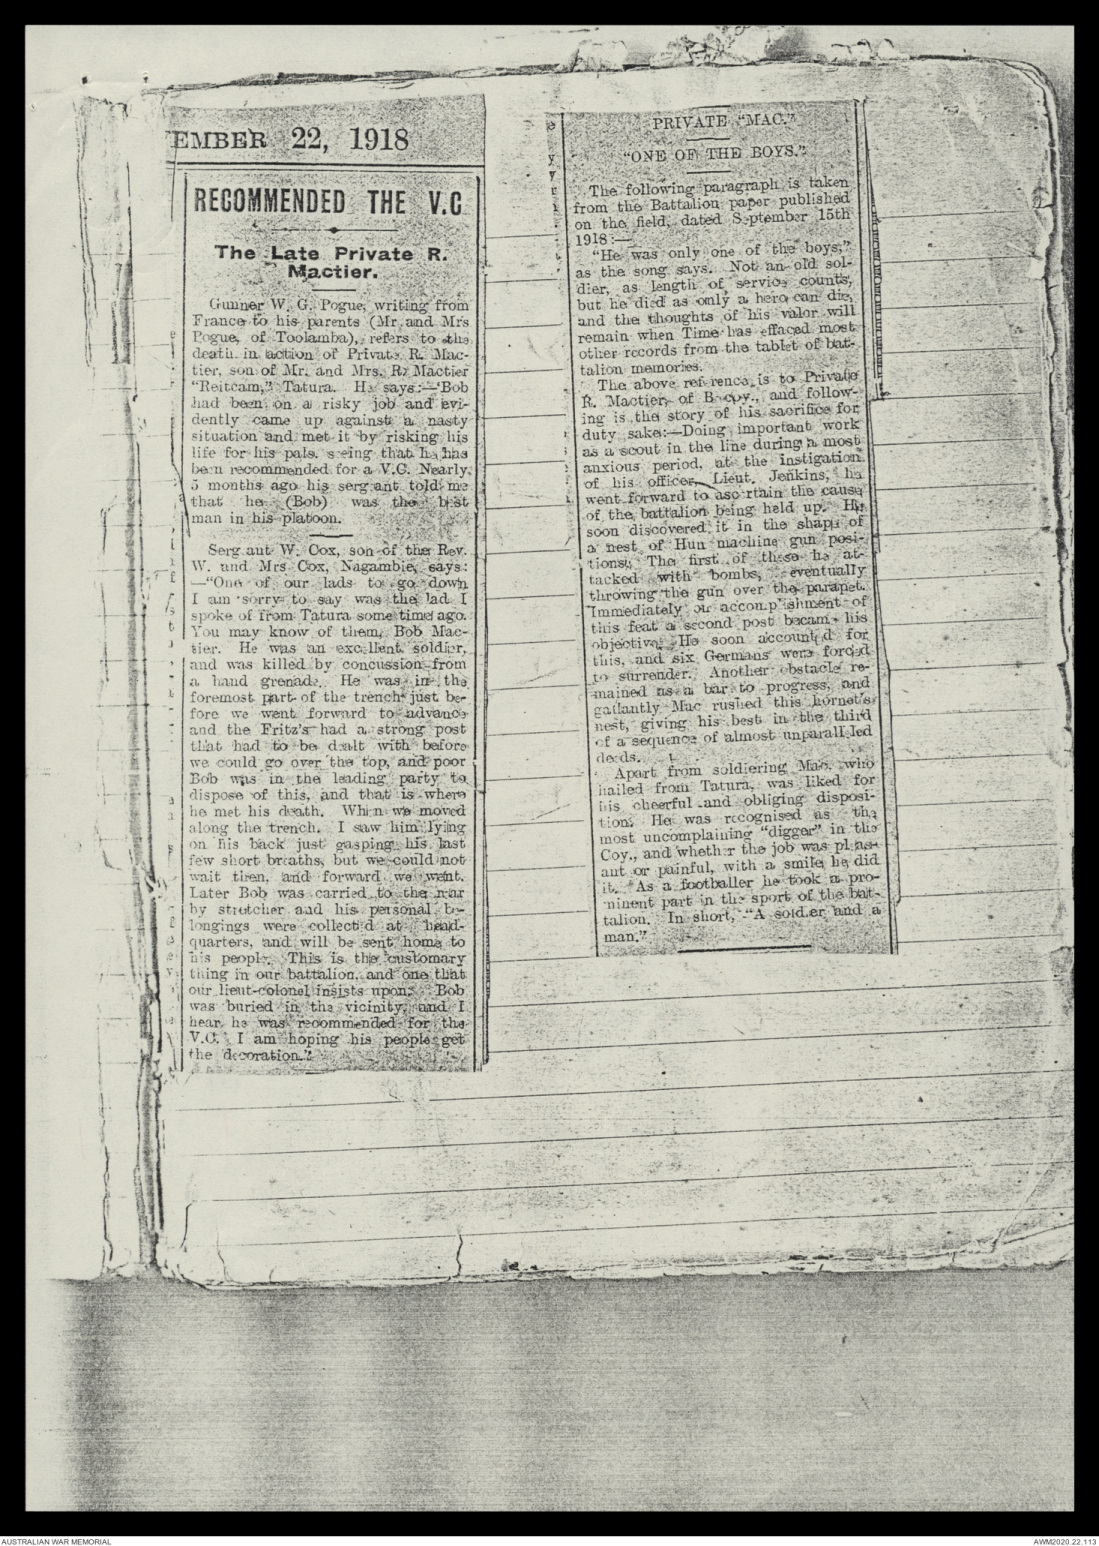 EMBER 22, 1918
RECOMMENDED THE V.C
The Late Private R.
Mactier.
Gunner W. G. Pogue, writing from
France to his parents (Mr and Mrs
Pogue, of Toolamba), refers to the
death in action of Private R. Mac-
tier, son of Mr. and Mrs. R. Mactier
"Reitcam," Tatura. He says:—"Bob
had been on a risky job and evi-
dently came up against a nasty
situation and met it by risking his
life for his pals, seeing that he has
been recommended for a V.C. Nearly
5 months ago his sergeant told me
that he (Bob) was the best
man in his platoon.
Sergeant W. Cox, son of the Rev.
W. and Mrs Cox, Nagambie, says:
—"One of our lads to go down
I am sorry to say was the lad I
spoke of from Tatura some time ago.
You may know of them, Bob Mac-
tier. He was an excellent soldier,
and was killed by concussion from
a hand grenade. He was in the
foremost part of the trench just be-
fore we went forward to advance
and the Fritz's had a strong post
that had to be dealt with before
we could go over the top, and poor
Bob was in the leading party to
dispose of this, and that is where
he met his death. When we moved
along the trench. I saw him lying
on his back just gasping his last
few short breaths, but we could not
wait then, and forward we went.
Later Bob was carried to the rear
by stretcher and his personal be-
longings were collected at head-
quarters, and will be sent home to
his people. This is the customary
thing in our battalion, and one that
our lieut-colonel insists upon. Bob
was buried in the vicinity, and I
hear he was recommended for the
V.C. I am hoping his people get
the decoration."
PRIVATE "MAC."
"ONE OF THE BOYS."
The following paragraph is taken
from the Battalion paper published
on the field, dated September 15th
1918:—
"He was only one of the boys,"
as the song says. Not an old sol-
dier, as length of service counts,
but he died as only a hero can die,
and the thoughts of his valor will
remain when Time has effaced most
other records from the tablet of bat-
talion memories.
The above reference is to Private
R. Mactier, of B coy., and follow-
ing is the story of his sacrifice for
duty sake:—Doing important work
as a scout in the line during a most
anxious period, at the instigation
of his officer, Lieut. Jenkins, he
went forward to ascertain the cause
of the battalion being held up. He
soon discovered it in the shape of
a nest of Hun machine gun posi-
tions. The first of these he at-
tacked with bombs, eventually
throwing the gun over the parapet.
Immediately on accomplishment of
this feat a second post became his
objective. He soon accounted for
this, and six Germans were forced
to surrender. Another obstacle re-
mained as a bar to progress, and
gallantly Mac rushed this hornet's
nest, giving his best in the third
of a sequence of almost unparalleled
deeds.
Apart from soldiering Mac. who
hailed from Tatura, was liked for
his cheerful and obliging disposi-
tion. He was recognised as the
most uncomplaining "digger" in the
Coy., and whether the job was pleas-
ant or painful, with a smile he did
it. As a footballer he took a pro-
minent part in the sport of the bat-
talion. In short, "A soldier and a
man."
AUSTRALIAN WAR MEMORIAL
AWM2020.22.113